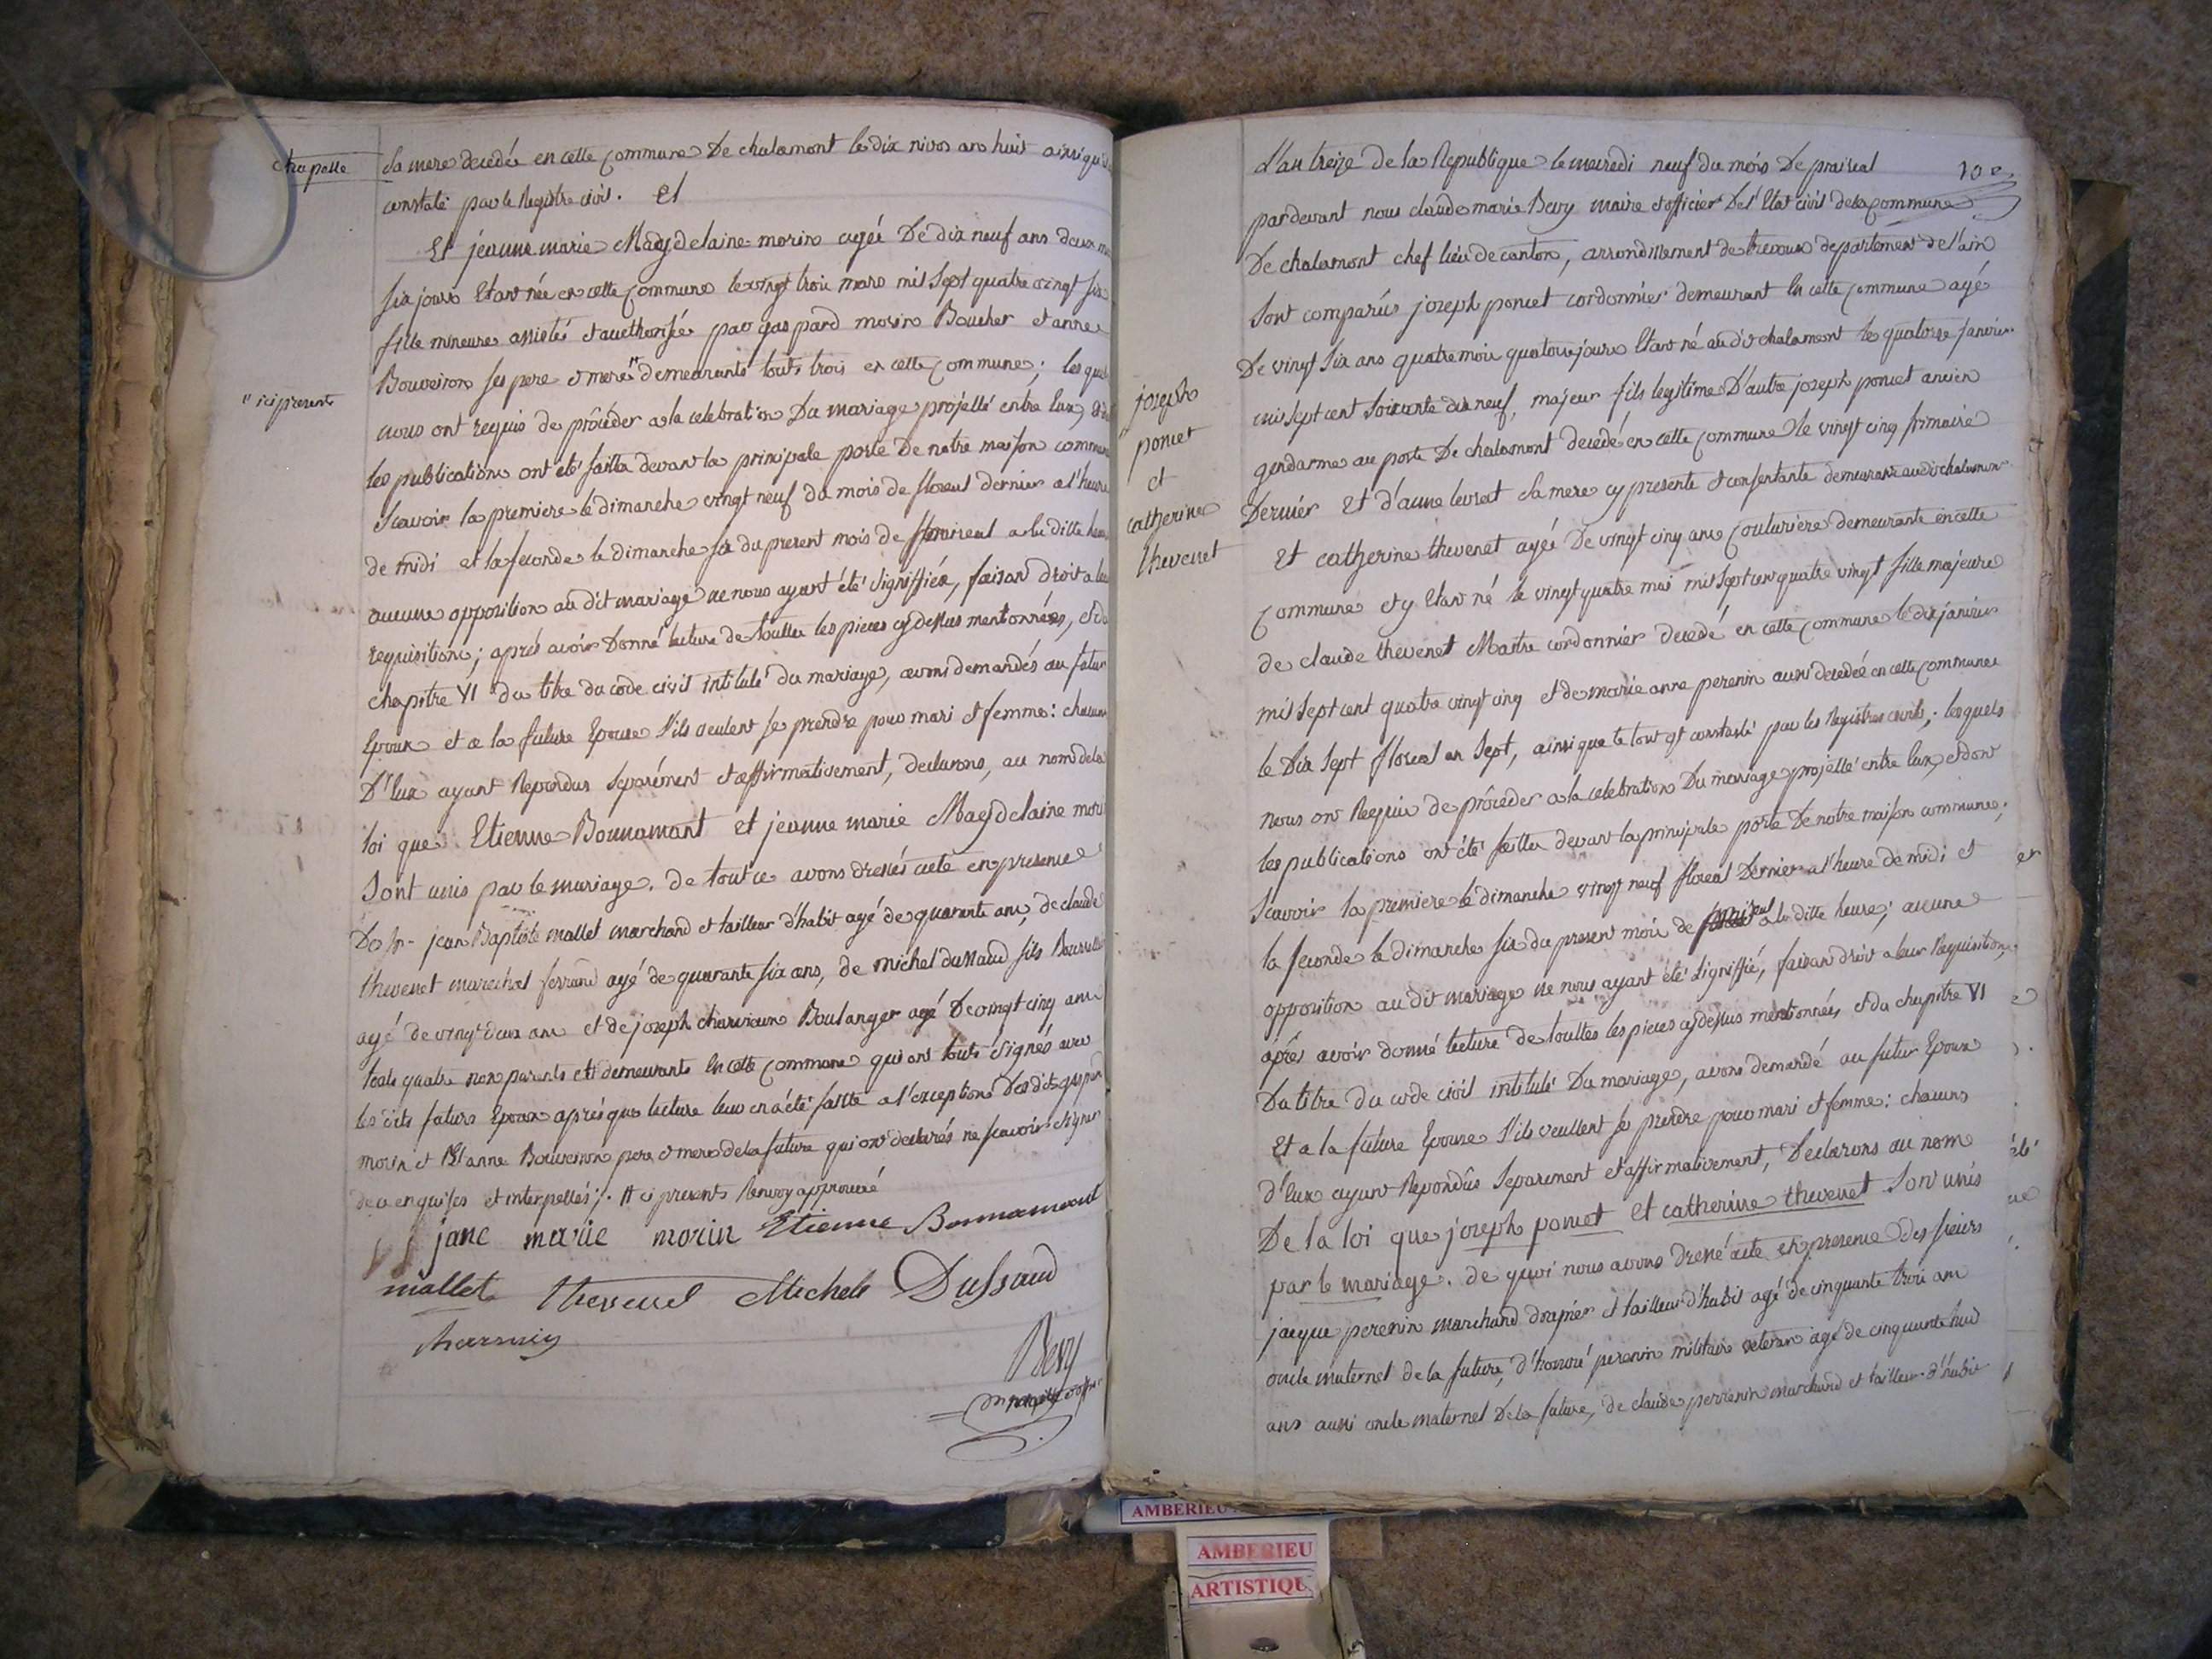 chapelle
sa mere decedée en cette commune De chalamont le dix nivos an huit ainsi qu'il
constaté par le Registre civil. et
Et jeanne marie Magdelaine morin agée De dix neuf ans deux
six jours Etant née en cette commune le vingt trois mars mil sept quatre vingt six
fille mineure assistée et authorisée par gaspard morin Boucher et anne
Bouveiron ses pere et mere " demeurants touts trois en cette commune; les quels
" ici presents
nous ont requis de procéder a la celebration Du mariage projetté entre Eux, et dont
les publications ont été faitte devant la principale porte De notre maison commune
scavoir la premiere le dimanche vingt neuf du mois de floreal dernier a l'heure
de midi et la seconde le dimanche six du present mois de prairial a la ditte heure
aucune opposition au dit mariage ne nous ayant été signiffiée, faisan droit a leur
requisition; après avoir Donné lecture de toutte les pieces cydessus mentionnées, et du
chapitre VI du titre du code civil intitulé du mariage, avons demandés au futur
Epoux et a la future Epouse s'ils veulent se prendre pour mari et femme: chacun
D'Eux ayant Repondus separément et affirmativement, declarons, au nom de la
loi que Etienne Bonnamant et jeanne marie Magdelaine morin
sont unis par le mariage. de tout ce avons dressés acte en presence
De sr. jean Baptiste mallet marchand et tailleur d'habit agé de quarante ans, de claude
thevenet marechal ferrand agé de quarante six ans, de michel dussaud fils Bourrelier
agé de vingt deux ans et de joseph charvieux Boulanger agé De vingt cinq ans
touts quatre non parents et demeurants En cette commune qui ont touts signés avec
les dits futurs Epoux après que lecture leur en a été faitte a l'exception Des dits gaspard
morin et anne Bouveiron pere et mere de la future qui ont declarés ne scavoir signer
de ce enquises et interpellés;. " ci presents Renvoy approuvé
jane marie morin Etienne Bonnamant
mallet thevenet Michele Dussaud
Bevy
l'an treize de la Republique le mercredi neuf du mois De prairial
pardevant nous claude marie Bevy maire et officier De l'Etat civil de la commune
De chalamont chef lieu de canton, arrondissement de trevoux departement de l'ain
sont comparûs joseph poncet cordonnier demeurant En cette commune agé
De vingt six ans quatre mois quatorze jours Etant né au dit chalamont le quatorze janvier
joseph
poncet
et
catherine
thevenet
mil sept cent soixante dix neuf, majeur fils legitime D'autre joseph poncet ancien
gendarme au poste De chalamont decedé en cette commune le vingt cinq frimaire
Dernier Et d'anne levrat sa mere cy presente et consentante demeurante au dit chalamont
Et catherine thevenet agée De vingt cinq ans couturiere demeurante en cette
commune et y Etant né le vingt quatre mai mil sept cent quatre vingt fille majeure
de claude thevenet Maitre cordonnier decedé en cette commune le dix janvier
mil sept cent quatre vingt cinq et de marie anne perenin aussi decedée en cette commune
le Dix sept floreal an sept, ainsi que le tout est constaté par les Registres civils; lesquels
nous ont Requis de procéder a la celebration Du mariage projetté entre Eux, et dont
les publications ont été faittes devant la principale porte De notre maison commune;
scavoir la premiere le dimanche vingt neuf floreal Dernier a l'heure de midi et
la seconde le dimanche six du present mois de prairial a la ditte heure; aucune
opposition au dit mariage ne nous ayant été signiffié, faisan droit a leur Requisition,
après avoir donné lecture de touttes les pieces cydessus mentionnées, et du chapitre VI
Du titre du code civil intitulé Du mariage, avons demandé au futur Epoux
Et a la future Epouse s'ils veullent se prendre pour mari et femme: chacuns
d'Eux ayant Repondûs separement et affirmativement, Declarons au nom
De la loi que joseph poncet et catherine thevenet sont unis
par le mariage. de quoi nous avons dressé acte en presence Des sieurs
jacque perenin marchand drapier et tailleur d'habit agé de cinquante trois ans
oncle maternel de la future, d'honoré perenin militaire veteran agé de cinquante huit
ans aussi oncle maternel De la future, de claude perrenin marchand et tailleur d'habit
AMBERIEU
AMBERIEU
ARTISTIQU